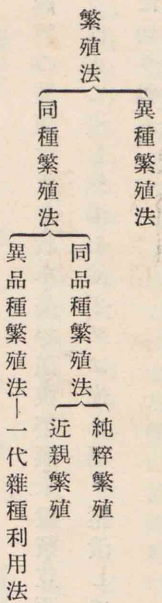 繁殖法
異種繁殖法
同種繁殖法
同品種繁殖法
純粹繁殖
近親繁殖
異品種繁殖法―一代雜種利用法